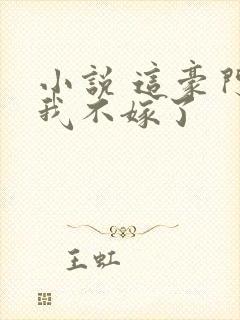 小說 這豪門
我不嫁了
王虹